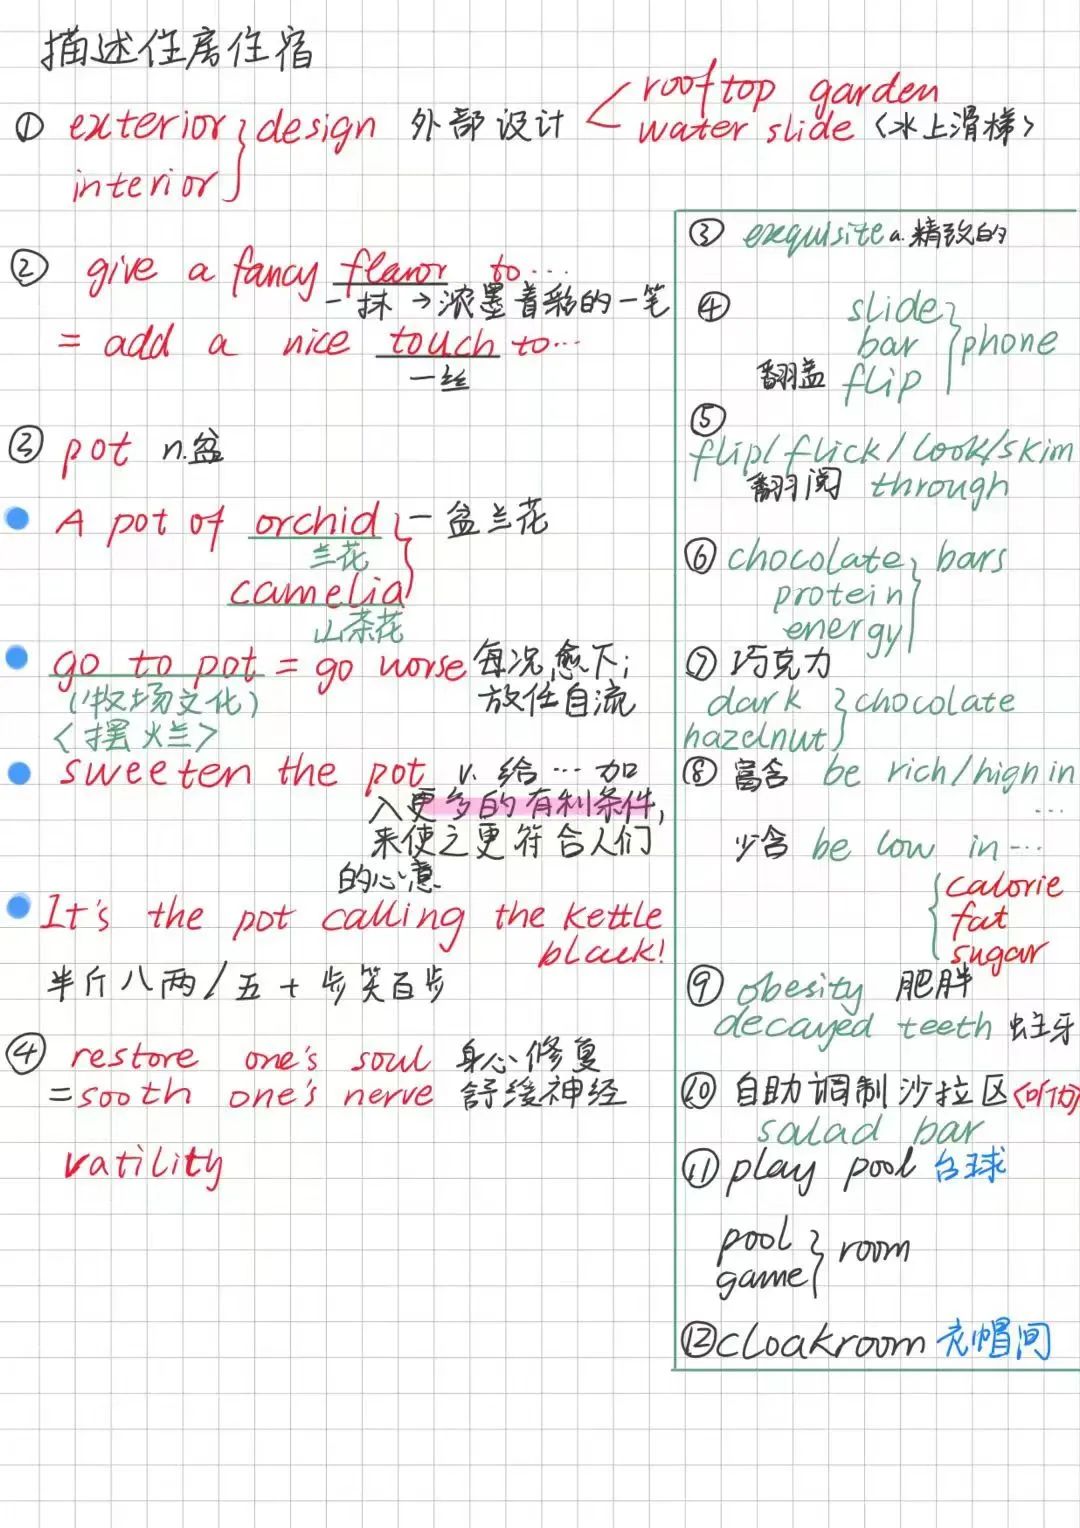 描述住房住宿
① exterior } design 外部设计 < rooftop garden
interior
water slide <水上滑梯>
② give a fancy flavor to…
一抹 → 浓墨着彩的一笔
= add a nice touch to…
一丝
③ pot n.盆
A pot of orchid } 一盆兰花
兰花
camelia
山茶花
go to pot = go worse 每况愈下;
(牧场文化) 放任自流
<摆烂>
sweeten the pot v. 给…加
入更多的有利条件,
来使之更符合人们
的心意
It's the pot calling the kettle
black!
半斤八两/五十步笑百步
④ restore one's soul 身心修复
= sooth one's nerve 舒缓神经
vatility
③ exquisite a.精致的
④ slide
bar } phone
翻盖 flip
⑤
flip/flick/look/skim
翻阅 through
⑥ chocolate } bars
protein
energy
⑦ 巧克力
dark } chocolate
hazelnut
⑧ 富含 be rich/high in
…
少含 be low in…
{ calorie
fat
sugar
⑨ obesity 肥胖
decayed teeth 蛀牙
⑩ 自助调制沙拉区
salad bar
⑪ play pool 台球
pool } room
game
⑫ cloakroom 衣帽间